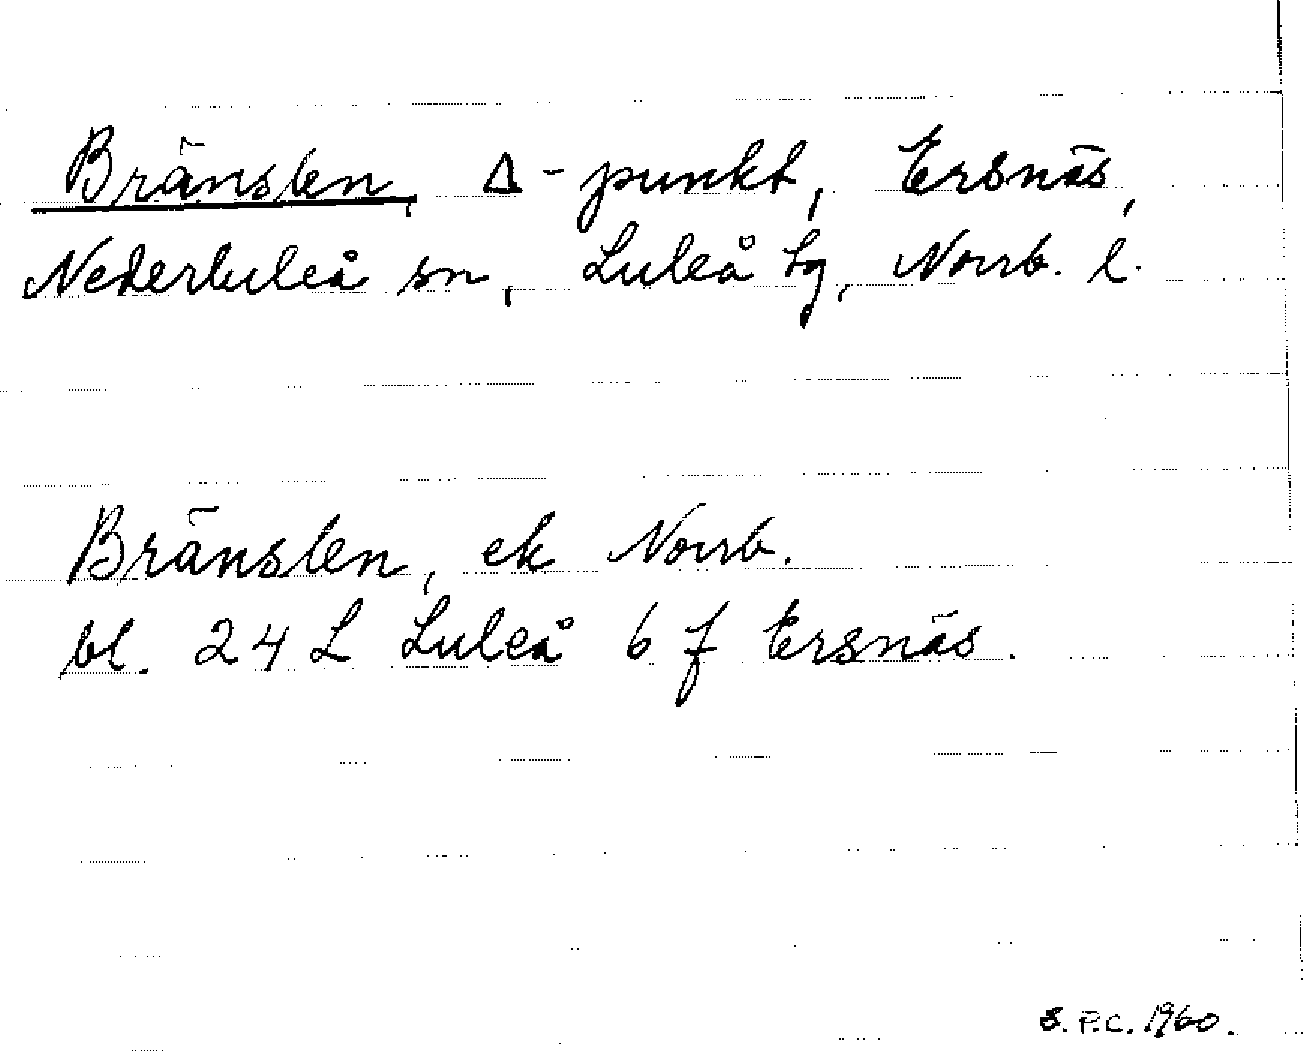 Bränslen, Δ-punkt, Ersnäs,
Nederluleå sn, Luleå tg, Norrb. l.
Bränslen, ek Norrb.
bl. 24 L Luleå 6 f Ersnäs.
S. P.C. 1960.